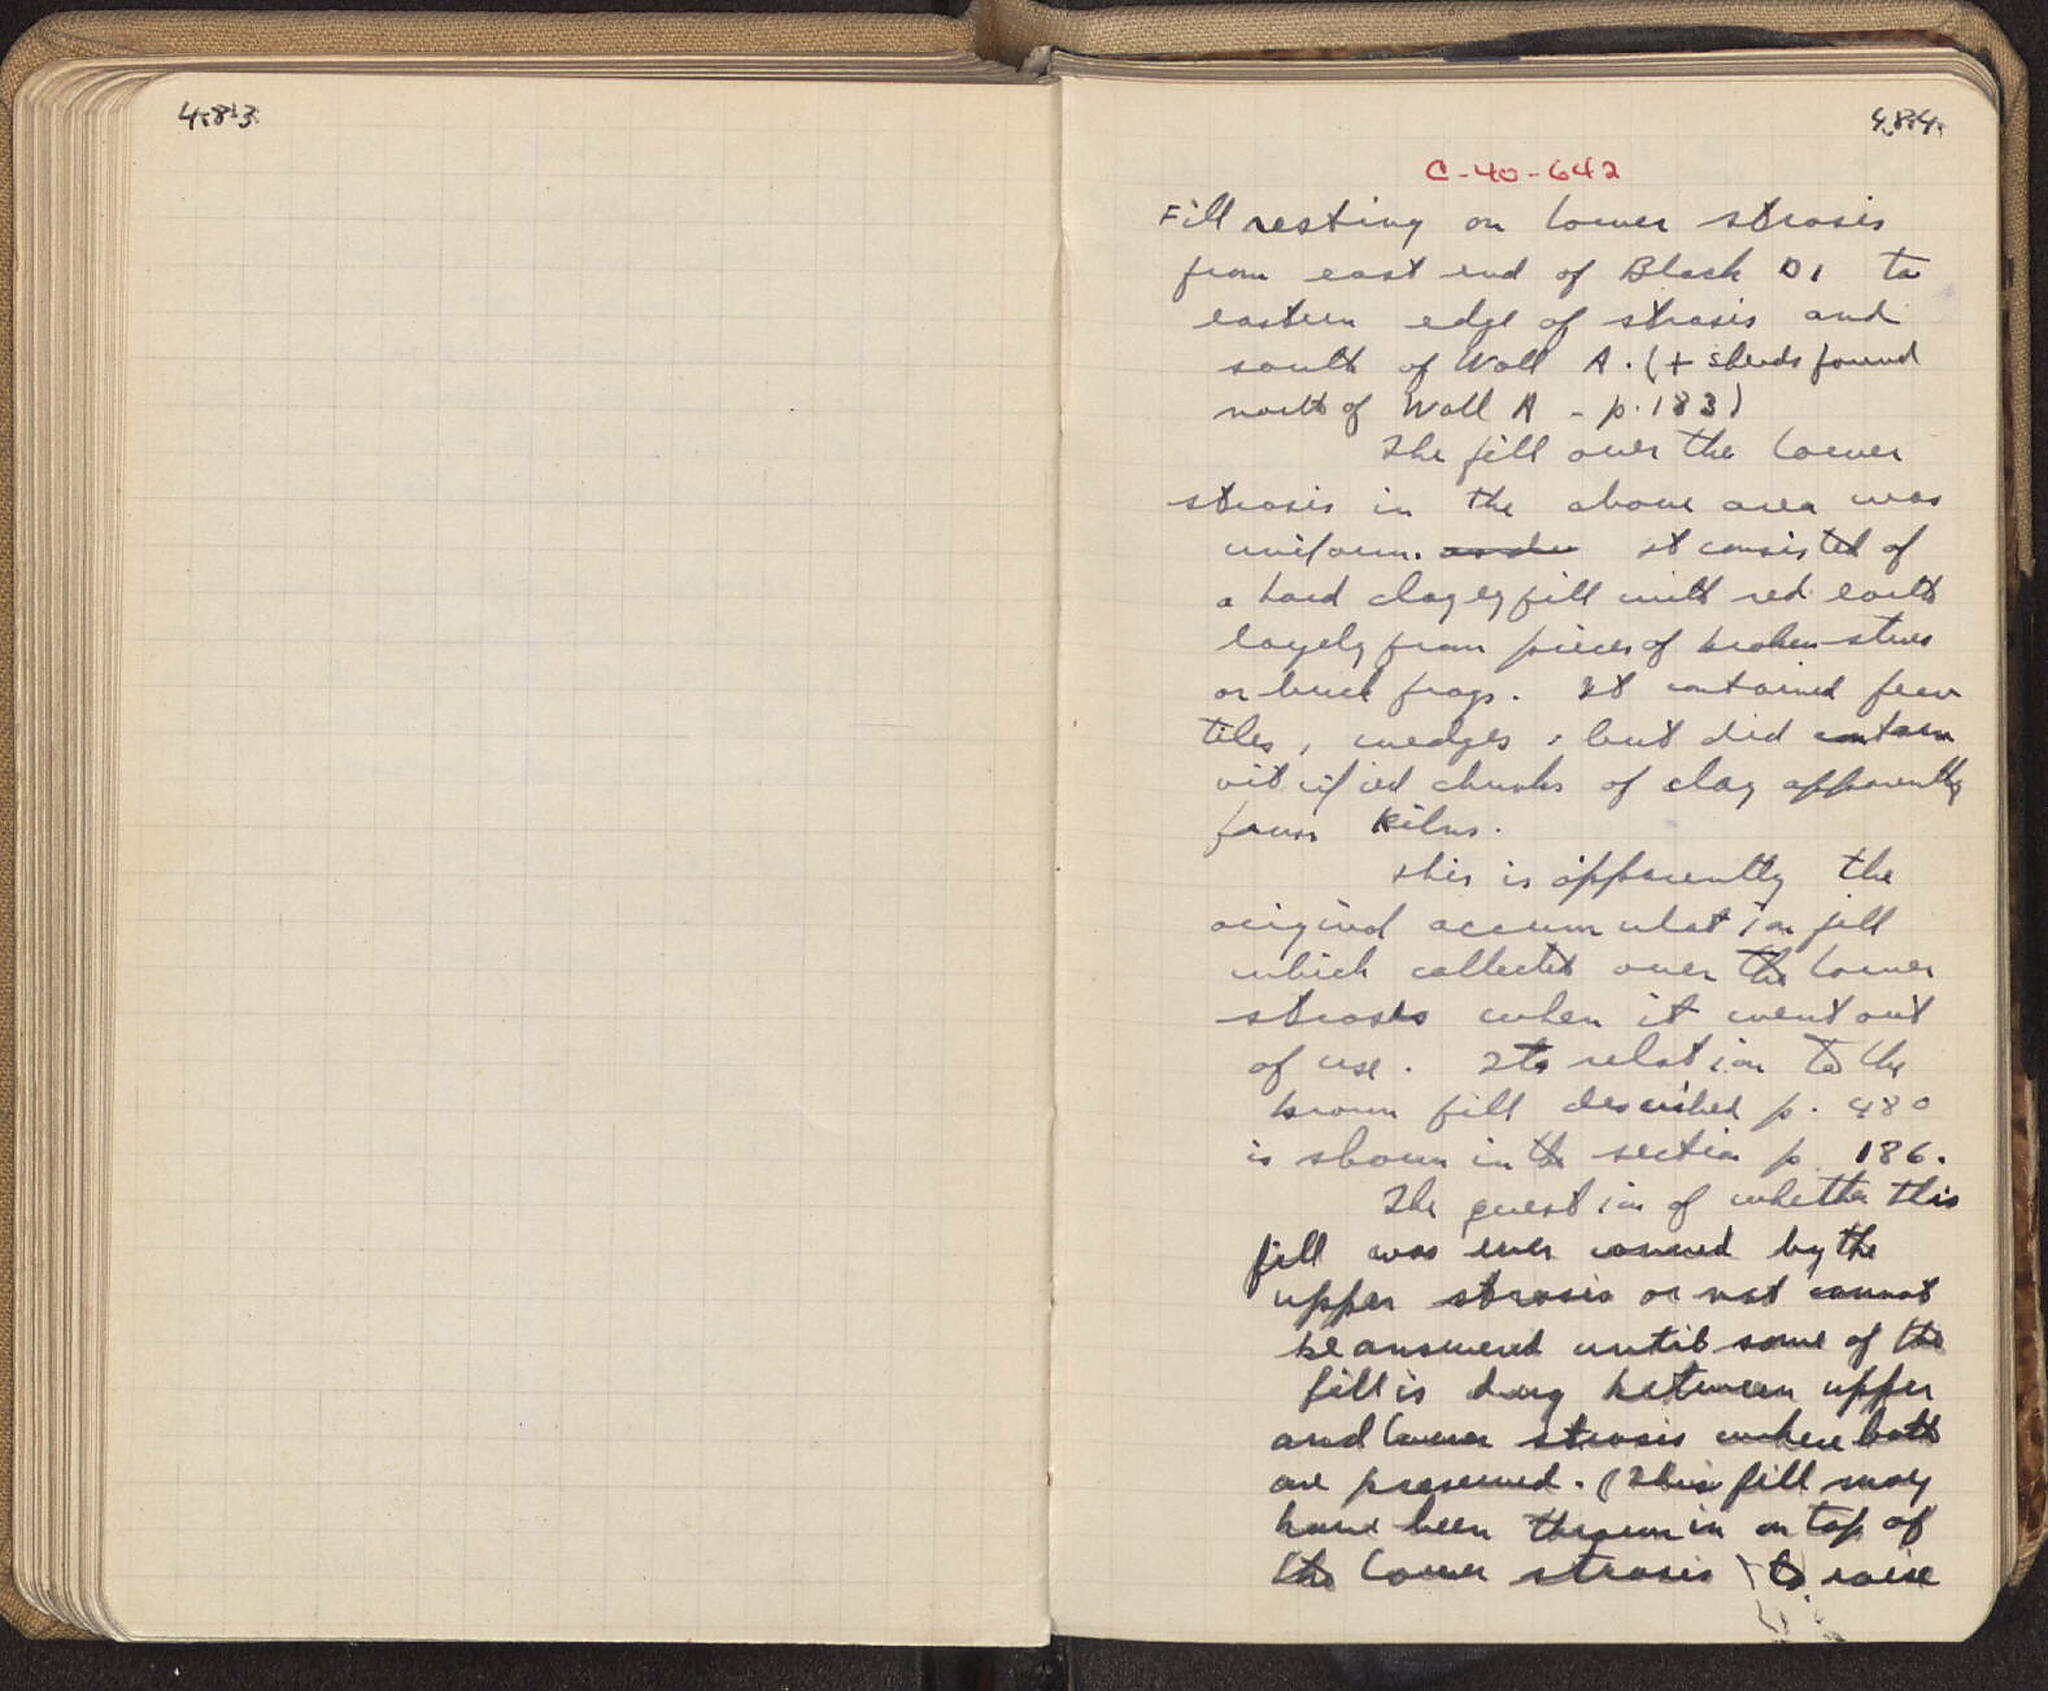 483
484
C-40-642
Fill resting on lower strosis
from east end of Block D1 to
eastern edge of strosis and
south of Wall A. (+ sherds found
north of Wall A - p. 183)
The fill over the lower
strosis in the above area was
uniform. It consisted of
a hard clayey fill with red earth
largely from pieces of broken stones
or brick frags. It contained few
tiles, wedges, but did contain
vitrified chunks of clay apparently
from Kilns.
This is apparently the
original accumulation fill
which collected over the lower
strosis when it went out
of use. Its relation to the
brown fill described p. 480
is shown in the section p 186.
The question of whether this
fill was ever covered by the
upper strosis or not cannot
be answered until some of the
fill is dug between upper
and lower strosis where both
are preserved. (This fill may
have been thrown in on top of
the lower strosis to raise